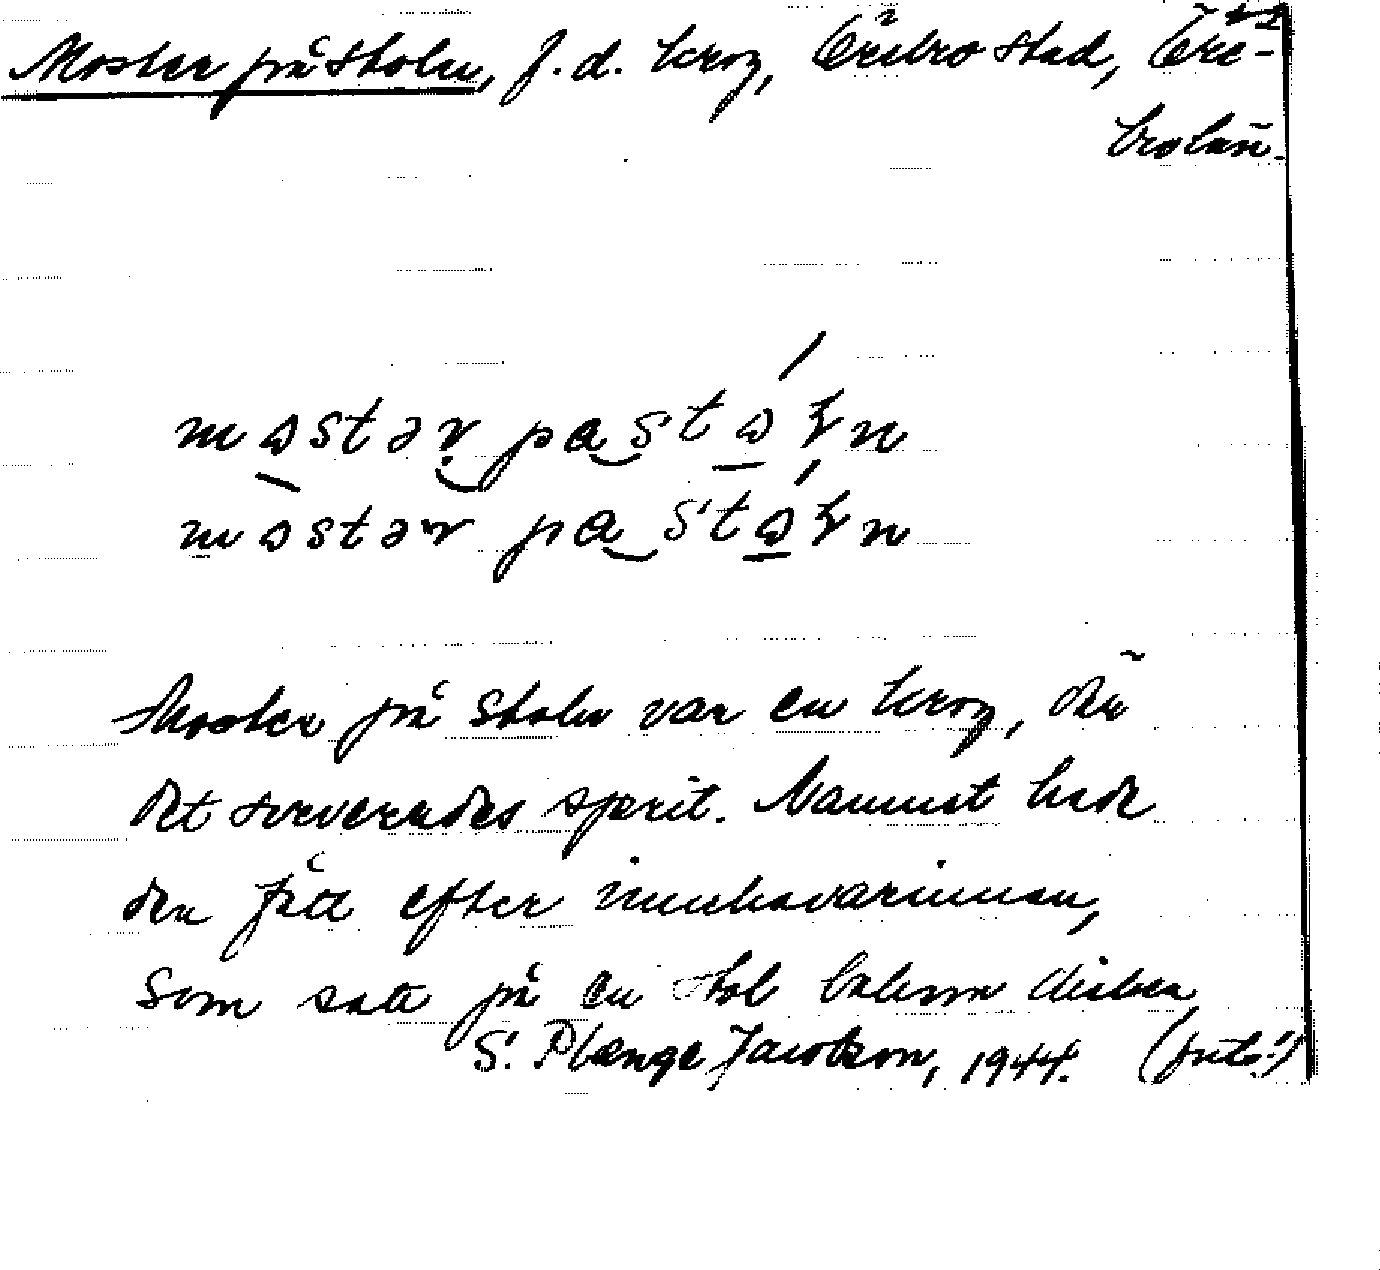 Moster på stolen, f.d. krog, Örebro stad, Öre-
brolän.
mɷstər pa stɷ́ɽn
mɷstər pa stɷ́ɽn
Moster på Stolen var en krog, där
det serverades sprit. Namnet hade
den fått efter innehavarinnan,
som satt på en stol bakom disken
S. Plænge Jacobson, 1944.